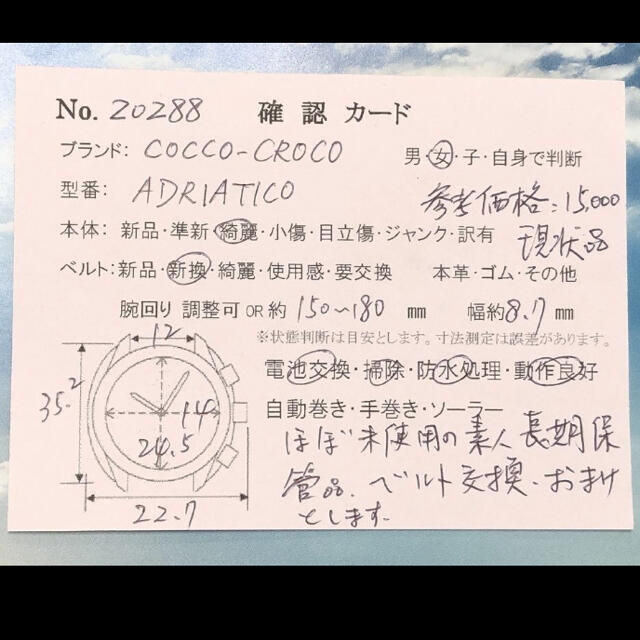 No. 20288 確認 カード
ブランド: COCCO-CROCO 男・女・子・自身で判断
型番: ADRIATICO 参考価格:15,000
本体: 新品・準新・綺麗・小傷・目立傷・ジャンク・訳有 現状品
ベルト:新品・新換・綺麗・使用感・要交換 本革・ゴム・その他
腕回り 調整可 OR 約 150~180 mm 幅約8.7mm
※状態判断は目安とします。寸法測定は誤差があります。
12
電池交換・掃除・防水処理・動作良好
35.2
14
自動巻き・手巻き・ソーラー
24.5
ほぼ未使用の素人長期保
管品、ベルト交換、おまけ
22.7
とします.